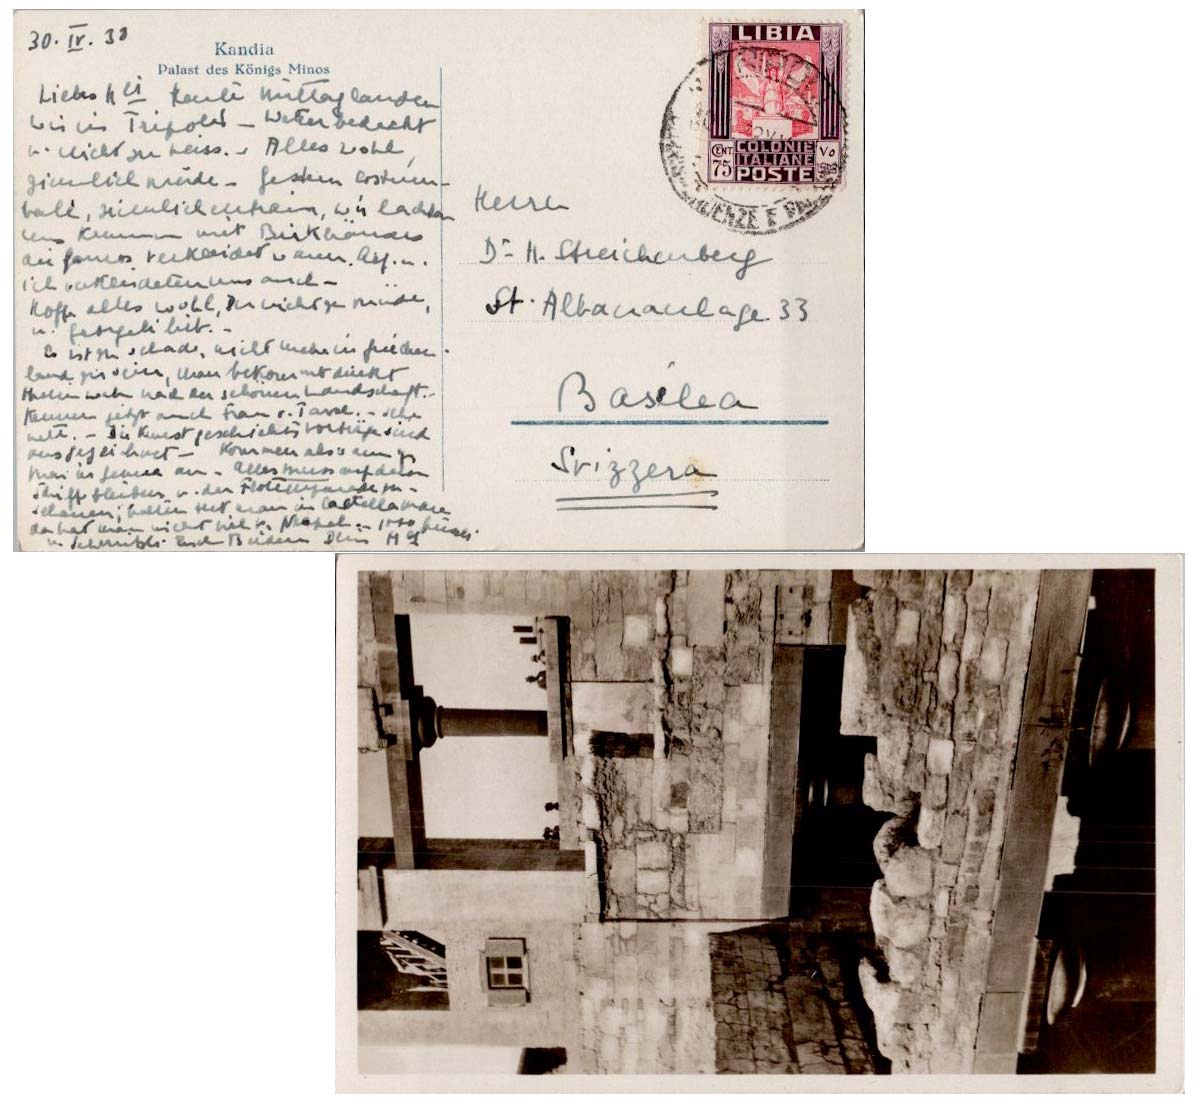 30. IV. 38
Kandia
Palast des Königs Minos
Liebes heute Mittag landen
wir in Tripolis – Wetter bedeckt
u. nicht zu heiss. – Alles wohl,
ziemlich müde – Gestern Costum-
ball, ziemlich wir lachten
uns krumm mit
der famos verkleidet waren. u.
ich verkleideten uns auch –
Hoffe alles wohl, Du nicht zu müde,
u.
Es ist zu schade, nicht mehr in Griechen-
land zu sein, man bekommt direkt
Heimweh nach der schönen Landschaft. –
Kennen jetzt auch Frau v. – sehr
nett. – Die Kunstgeschichtsvorträge sind
ausgezeichnet – Kommen also am
Mai in Genua an – Alles muss auf dem
Schiff bleiben u. der Flottenparade zu-
schauen, halten erst in Castellamare
da hat man nicht viel v. Neapel –
u. Euch Beiden Dein
LIBIA
CENT.
75
COLONIE
ITALIANE
POSTE
Herrn
Dr. H. Streichenberg
St. Albananlage 33
Basilea
Svizzera